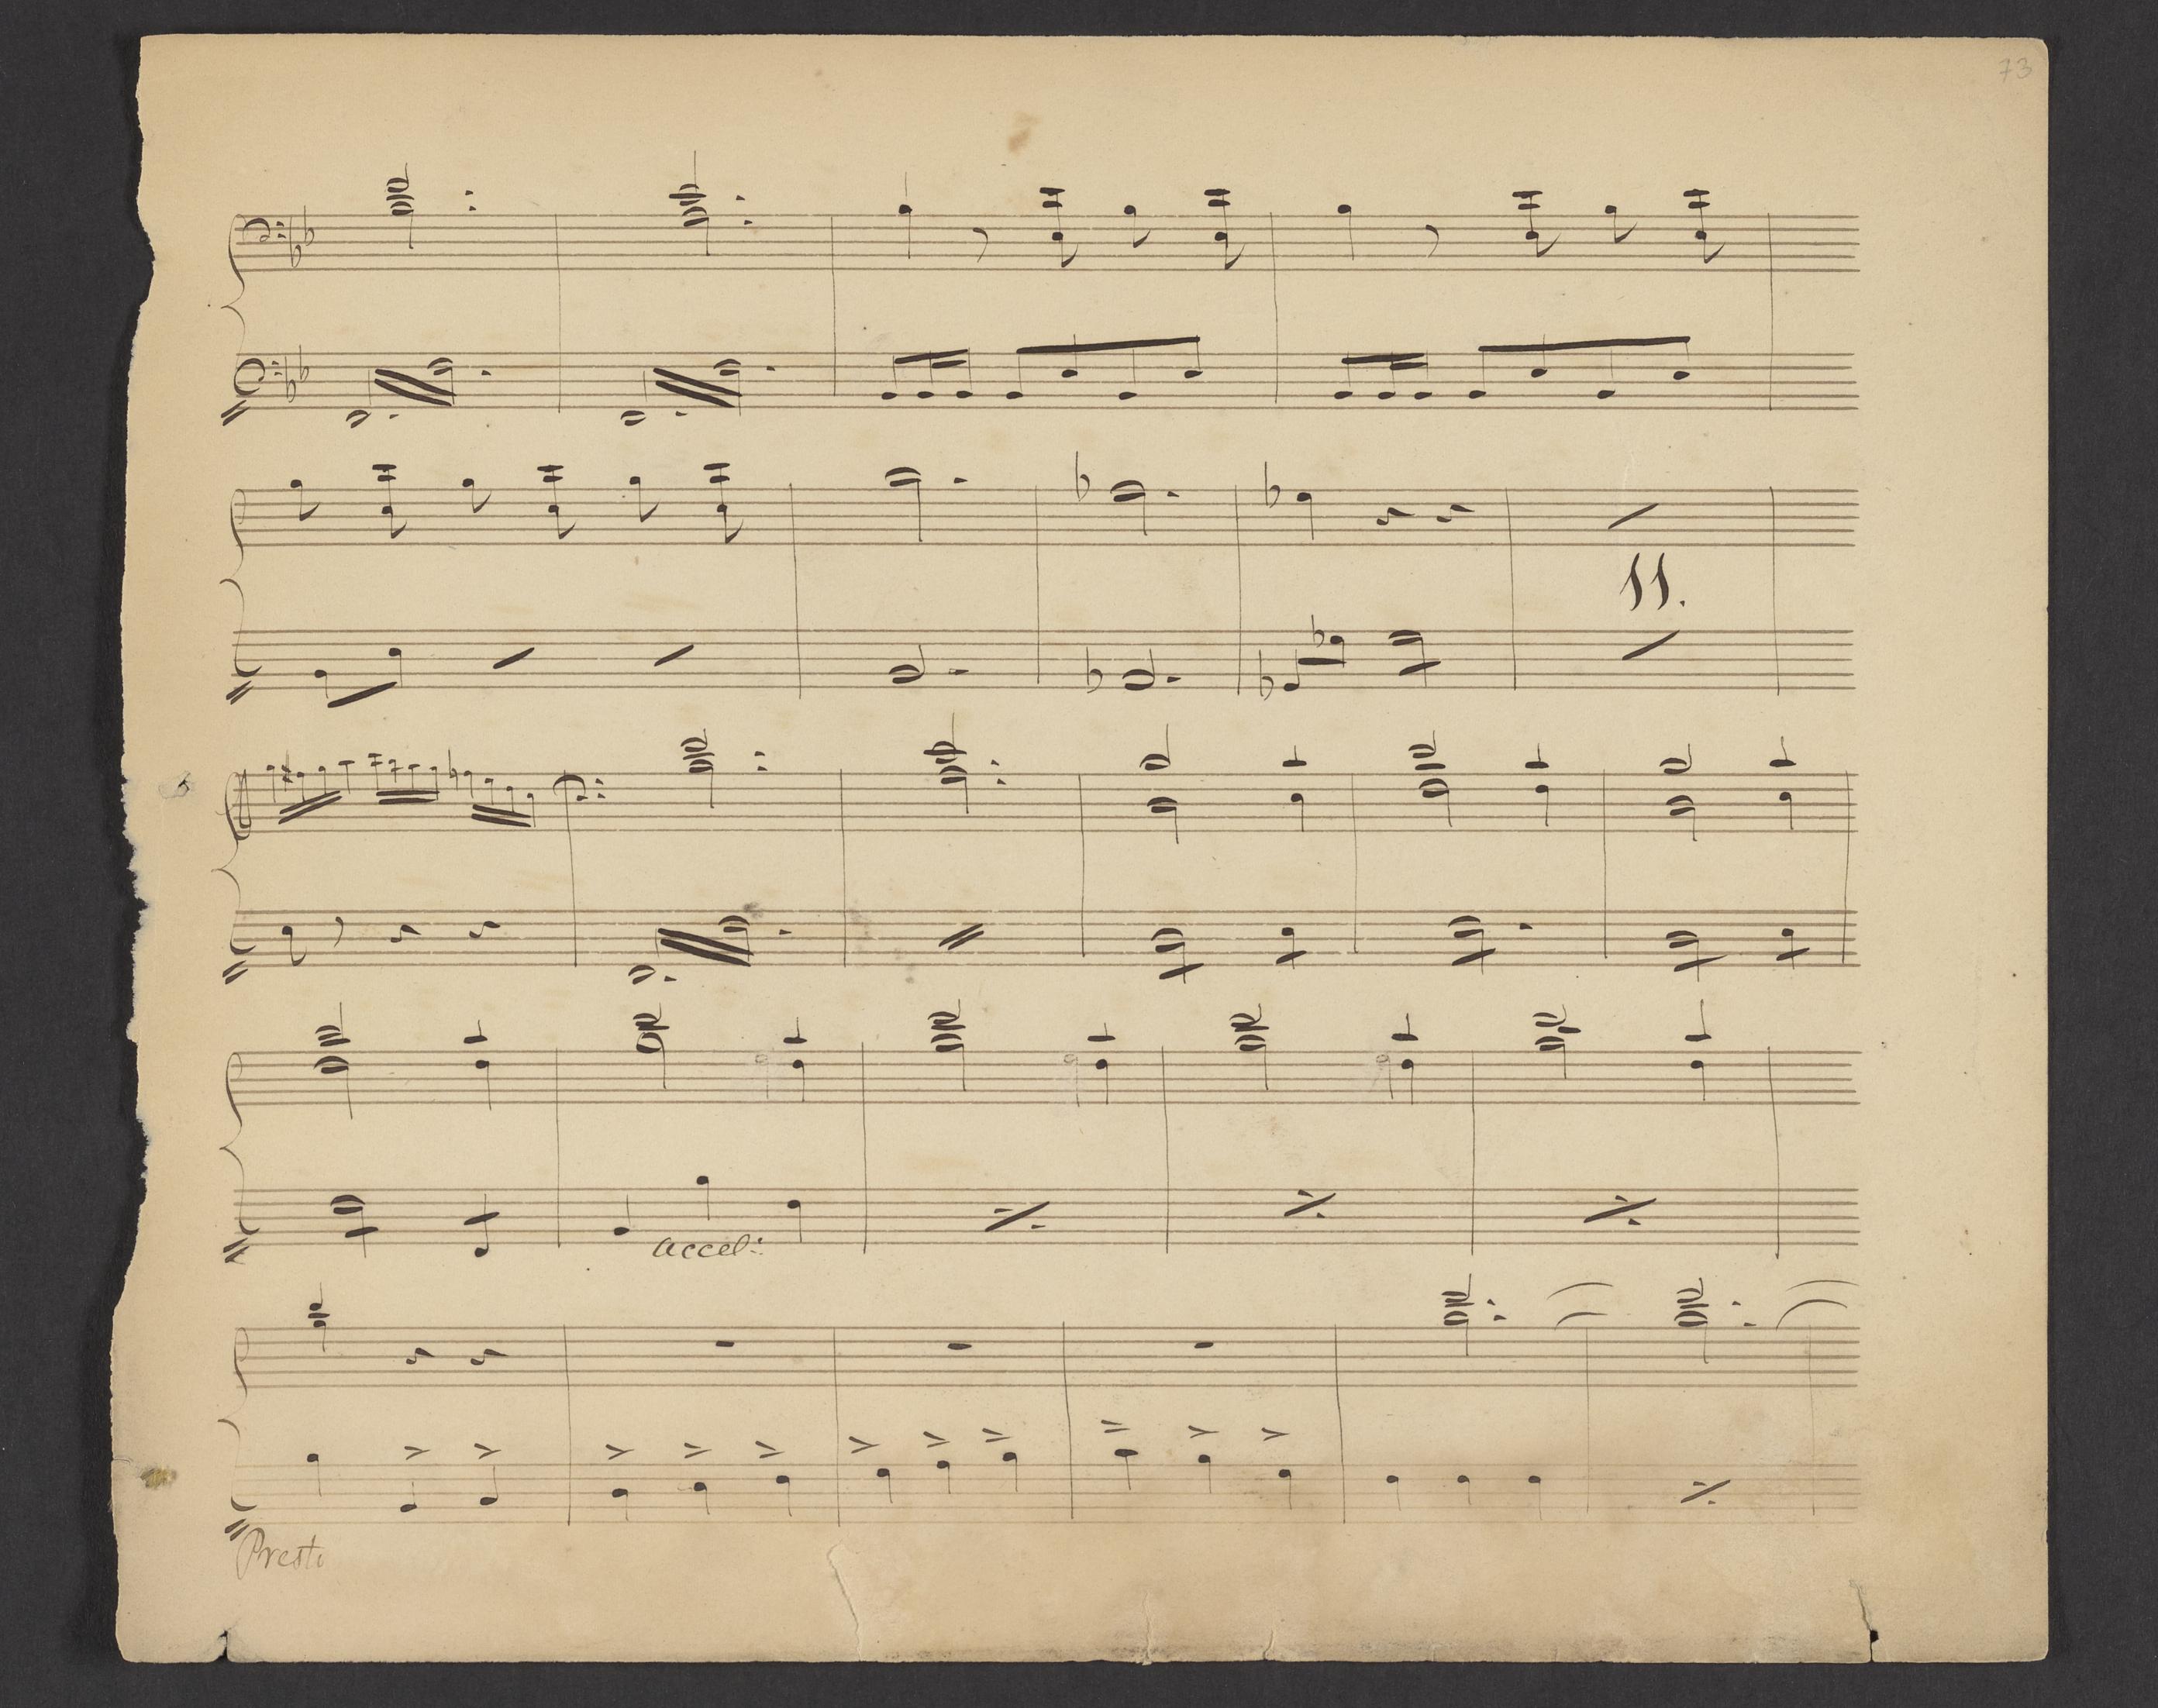 73
accel:
Presto